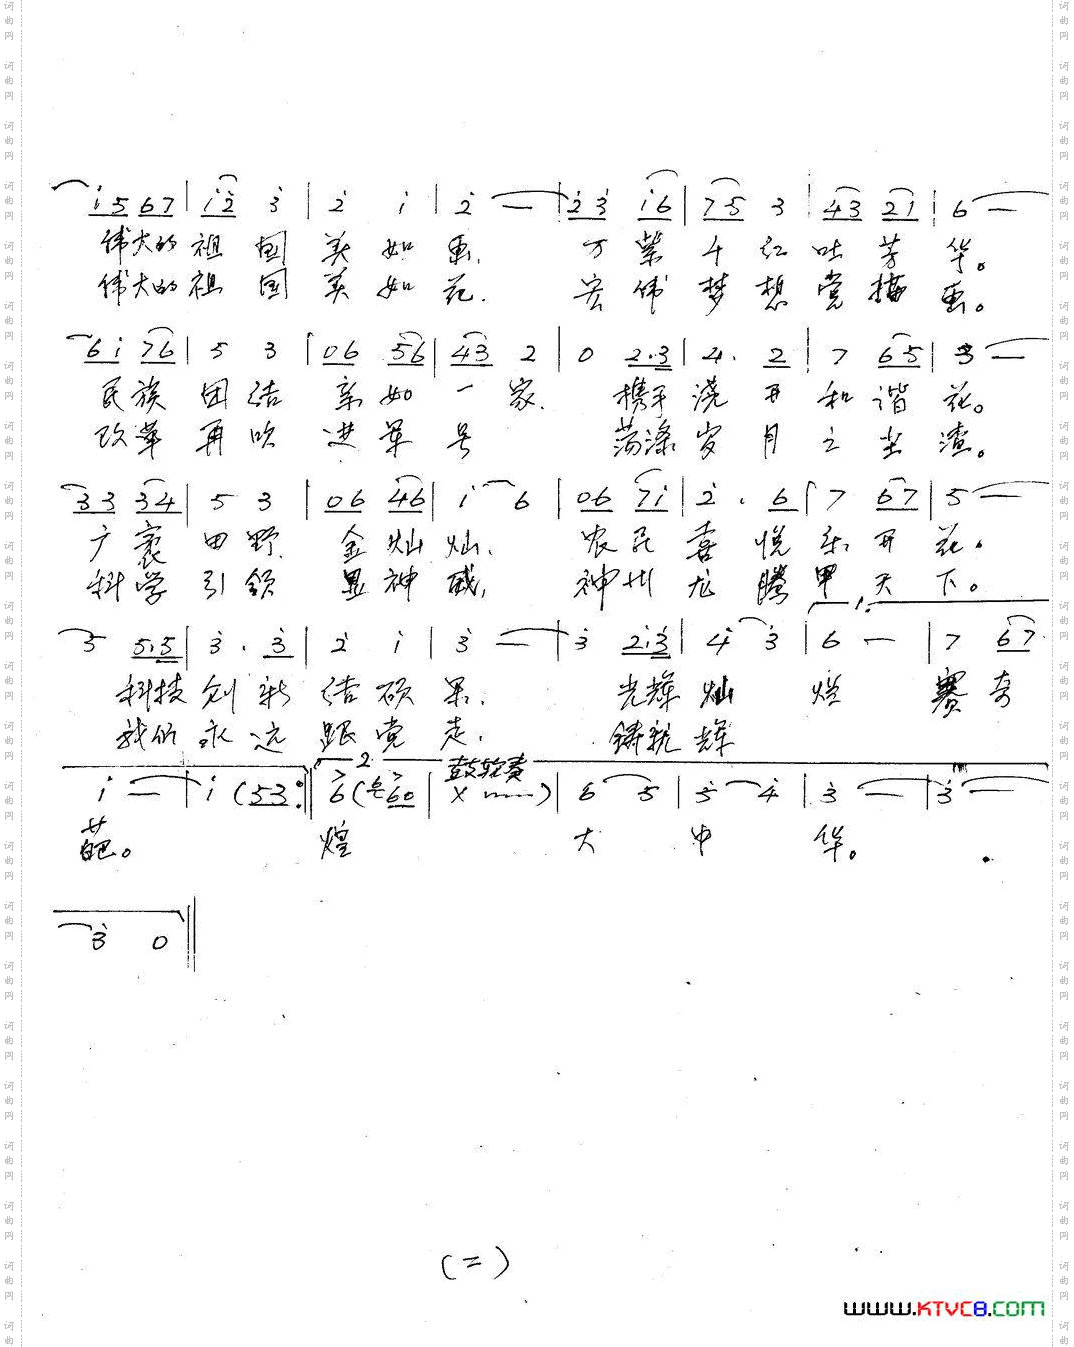 i 5 6 7 | i 2 3 | 2 i | 2 — | 2 3 i 6 | 7 5 3 | 4 3 2 1 | 6 —
伟大的祖国美如画. 万紫千红吐芳华。
伟大的祖国美如花. 宏伟梦想党描画。
6 i 7 6 | 5 3 | 0 6 5 6 | 4 3 2 | 0 2·3 | 4· 2 | 7 6 5 | 3 —
民族团结亲如一家. 携手浇开和谐花。
改革再吹进军号 荡涤岁月之尘渣。
3 3 3 4 | 5 3 | 0 6 4 6 | i 6 | 0 6 7 i | 2· 6 | 7 6 7 | 5 —
广袤田野金灿灿. 农民喜悦乐开花.
科学引领显神威, 神州龙腾甲天下。
1.
5 5·5 | 3· 3 | 2 i | 3 — | 3 2·3 | 4 3 | 6 — | 7 6 7
科技创新结硕果. 光辉灿烂赛奇
我们永远跟党走. 铸就辉
2. 鼓软奏
i — | i (5 3 :‖ 6 (6 0 | X ——) | 6 5 | 5 4 | 3 — | 3 —
葩。 煌 大中华。
3 0 ‖
(二)
www.KTVC8.com